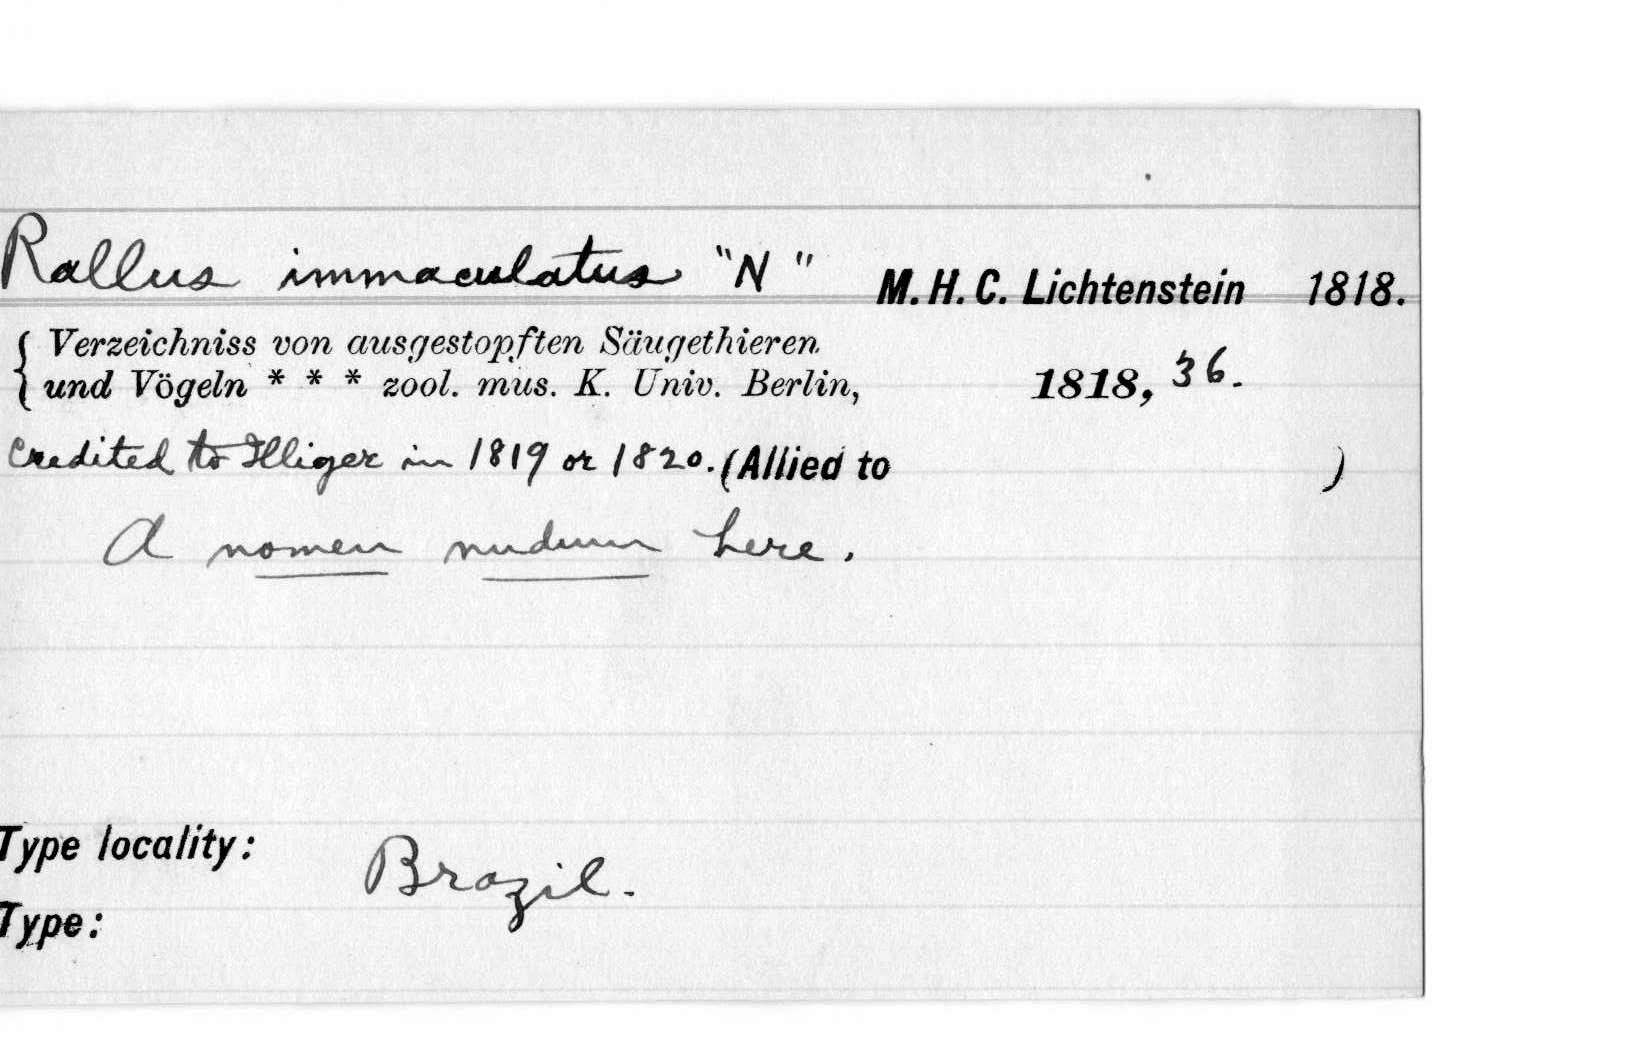 Rallus immaculatus "N" M. H. C. Lichtenstein 1818.
Verzeichniss von ausgestopften Säugethieren
und Vögeln * * * zool. mus. K. Univ. Berlin, 1818, 36.
Credited to Illiger in 1819 or 1820. (Allied to )
A nomen nudum here.
Type locality: Brazil.
Type: